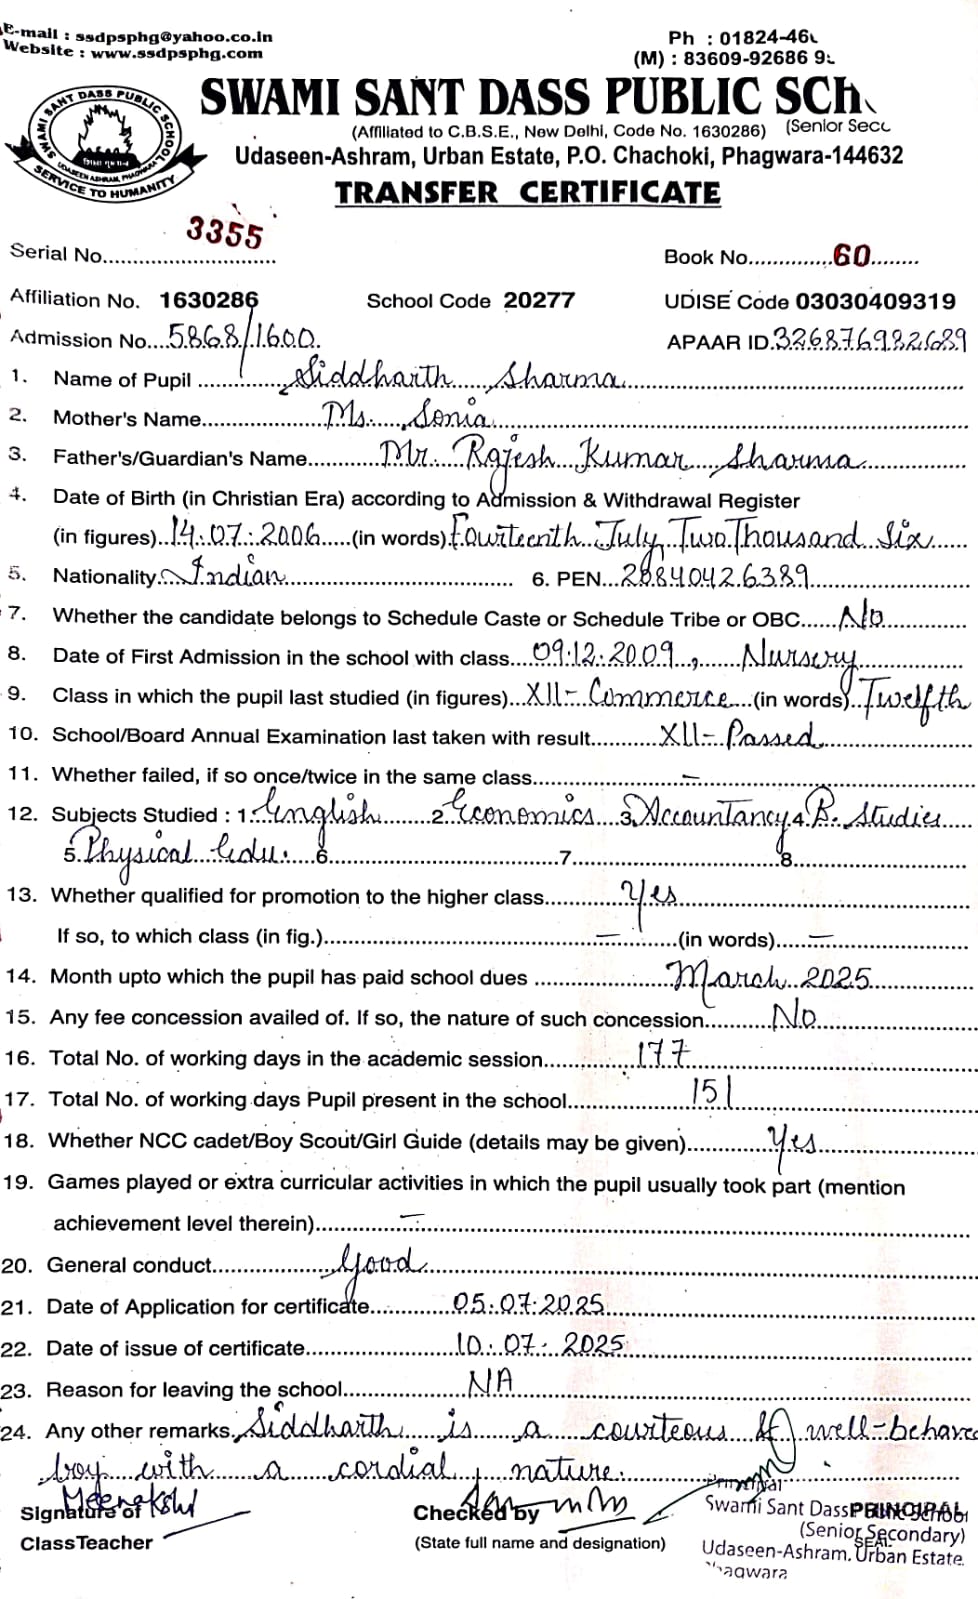 E-mail : ssdpsphg@yahoo.co.in
Website : www.ssdpsphg.com
Ph : 01824-46
(M) : 83609-92686 9
SWAMI SANT DASS PUBLIC SCH
(Affiliated to C.B.S.E., New Delhi, Code No. 1630286) (Senior Sec
Udaseen-Ashram, Urban Estate, P.O. Chachoki, Phagwara-144632
SWAMI SANT DASS PUBLIC SCHOOL
UDASEEN ASHRAM, PHAGWARA
SERVICE TO HUMANITY
TRANSFER CERTIFICATE
Serial No. 3355 Book No. 60
Affiliation No. 1630286 School Code 20277 UDISE Code 03030409319
Admission No. 5868/1600. APAAR ID. 326876982689
1. Name of Pupil Siddharth Sharma
2. Mother's Name Ms. Sonia
3. Father's/Guardian's Name Mr. Rajesh Kumar Sharma
4. Date of Birth (in Christian Era) according to Admission & Withdrawal Register
(in figures) 14.07.2006 (in words) Fourteenth July Two Thousand Six
5. Nationality Indian 6. PEN 20840426389
7. Whether the candidate belongs to Schedule Caste or Schedule Tribe or OBC No
8. Date of First Admission in the school with class 09.12.2009, Nursery
9. Class in which the pupil last studied (in figures) XII-Commerce (in words) Twelfth
10. School/Board Annual Examination last taken with result XII-Passed
11. Whether failed, if so once/twice in the same class —
12. Subjects Studied : 1. English 2 Economics 3. Accountancy 4. B. Studies
5. Physical Edu. 6 7 8
13. Whether qualified for promotion to the higher class Yes
If so, to which class (in fig.) — (in words) —
14. Month upto which the pupil has paid school dues March 2025
15. Any fee concession availed of. If so, the nature of such concession No
16. Total No. of working days in the academic session 177
17. Total No. of working days Pupil present in the school 151
18. Whether NCC cadet/Boy Scout/Girl Guide (details may be given) Yes
19. Games played or extra curricular activities in which the pupil usually took part (mention
achievement level therein) —
20. General conduct Good
21. Date of Application for certificate 05.07.2025
22. Date of issue of certificate 10.07.2025
23. Reason for leaving the school NA
24. Any other remarks. Siddharth is a courteous & well-behave
boy with a cordial nature.
Meenakshi
Signature of
Class Teacher
Checked by
(State full name and designation)
Principal
Swami Sant Dass Public School
PRINCIPAL
(Senior Secondary)
SEAL
Udaseen-Ashram, Urban Estate,
hagwara